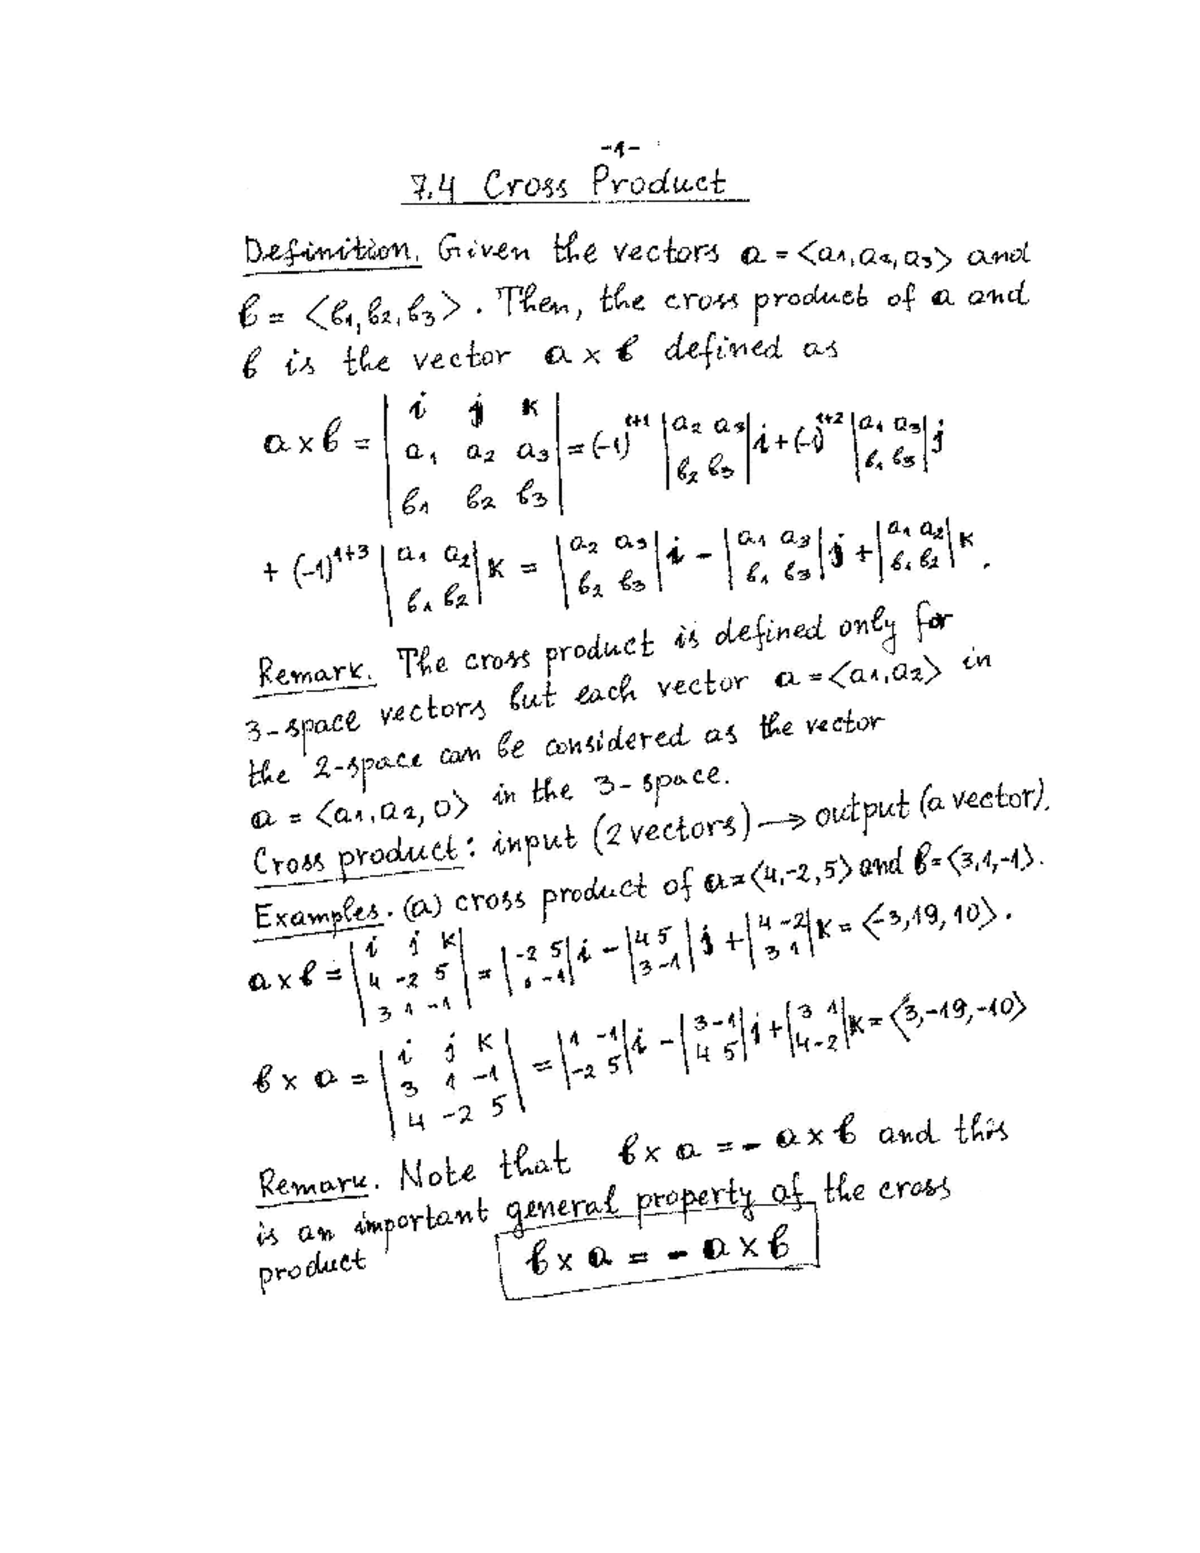 -1-
7.4 Cross Product
Definition. Given the vectors a = <a1, a2, a3> and
b = <b1, b2, b3>. Then, the cross product of a and
b is the vector a x b defined as
a x b = | i j k ; a1 a2 a3 ; b1 b2 b3 | = (-1)^1+1 | a2 a3 ; b2 b3 | i + (-1)^1+2 | a1 a3 ; b1 b3 | j
+ (-1)^1+3 | a1 a2 ; b1 b2 | k = | a2 a3 ; b2 b3 | i - | a1 a3 ; b1 b3 | j + | a1 a2 ; b1 b2 | k.
Remark. The cross product is defined only for
3-space vectors but each vector a = <a1, a2> in
the 2-space can be considered as the vector
a = <a1, a2, 0> in the 3-space.
Cross product: input (2 vectors) → output (a vector).
Examples. (a) cross product of a = <4, -2, 5> and b = <3, 1, -1>.
a x b = | i j k ; 4 -2 5 ; 3 1 -1 | = | -2 5 ; 1 -1 | i - | 4 5 ; 3 -1 | j + | 4 -2 ; 3 1 | k = <-3, 19, 10>.
b x a = | i j k ; 3 1 -1 ; 4 -2 5 | = | 1 -1 ; -2 5 | i - | 3 -1 ; 4 5 | j + | 3 1 ; 4 -2 | k = <3, -19, -10>
Remark. Note that b x a = - a x b and this
is an important general property of the cross
product b x a = - a x b